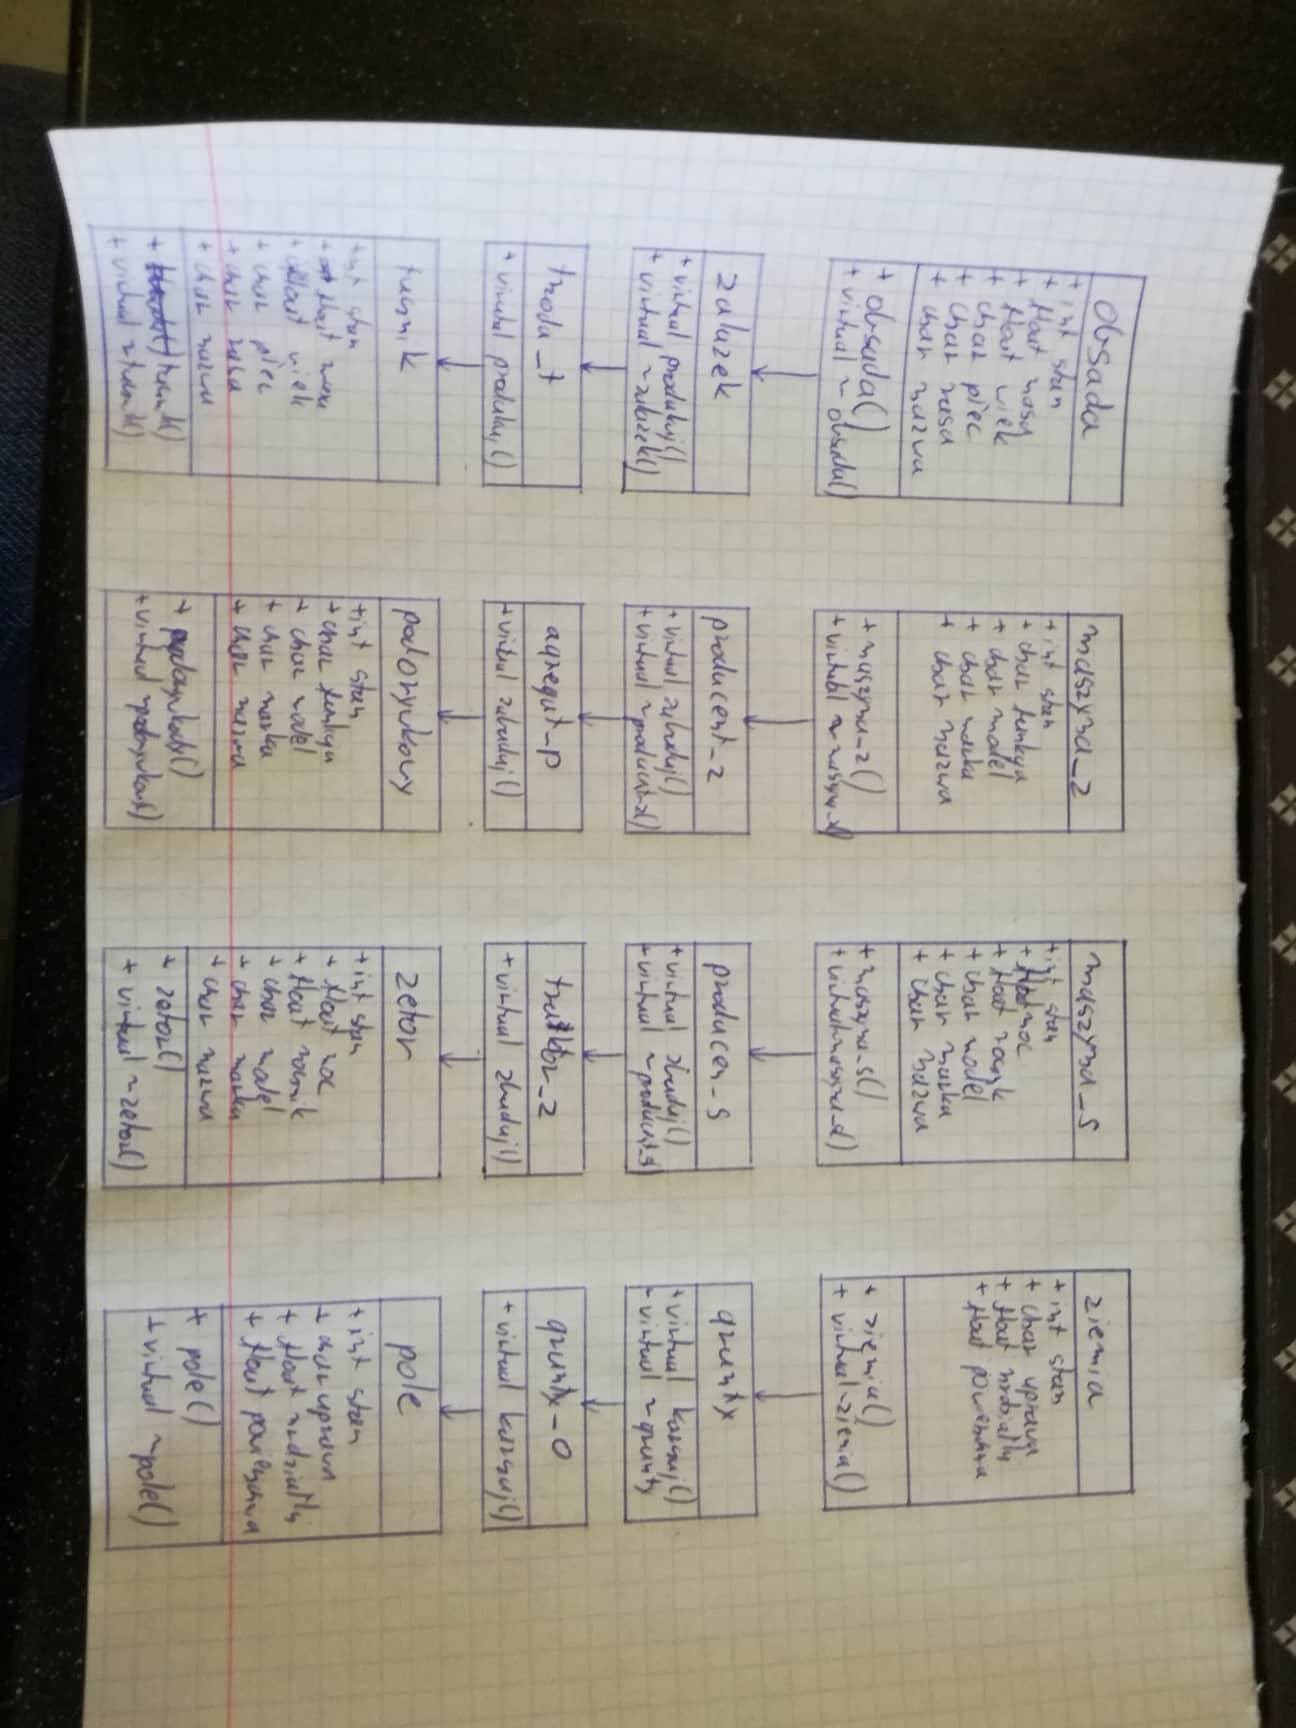 obsada
+ int stan
+ float masa
+ float wiek
+ char płec
+ char rasa
+ char nazwa
+ obsada()
+ virtual ~ obsada()
zalazek
+ virtual produkuj()
+ virtual ~zalazek()
+ virtual produkuj()
+ int stan
+ float wiek
+ char płec
+ char rasa
+ char nazwa
maszyna_z
+ int stan
+ char funkcja
+ char model
+ char marka
+ char nazwa
+ maszyna_z()
+ virtual ~ maszyna_z()
producent_z
+ virtual zbuduj()
+ virtual ~producent_z()
agregat_p
+ virtual zbuduj()
podorywkowy
+ int stan
+ char funkcja
+ char model
+ char marka
+ char nazwa
+ podorywkowy()
+ virtual ~podorywkowy()
maszyna_s
+ int stan
+ float moc
+ float
+ char model
+ char marka
+ char nazwa
+ maszyna_s()
+ virtual ~maszyna_s()
producen_s
+ virtual zbuduj()
+ virtual ~producent_s()
traktor_z
+ virtual zbuduj()
zetor
+ int stan
+ float moc
+ float
+ char model
+ char marka
+ char nazwa
+ zetor()
+ virtual ~zetor()
ziemia
+ int stan
+ char uprawa
+ float
+ float
+ ziemia()
+ virtual ~ziemia()
grunty
+ virtual
+ virtual ~grunty
grunty_o
+ virtual
pole
+ int stan
+ char uprawa
+ float
+ float
+ pole()
+ virtual ~pole()